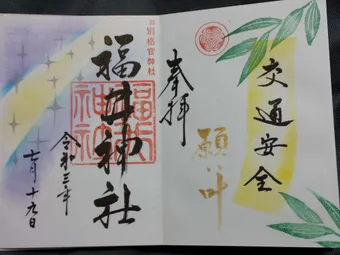 交通安全
願い叶
奉拝
旧別格官幣社
福井神社
福井神社
令和三年
七月十九日